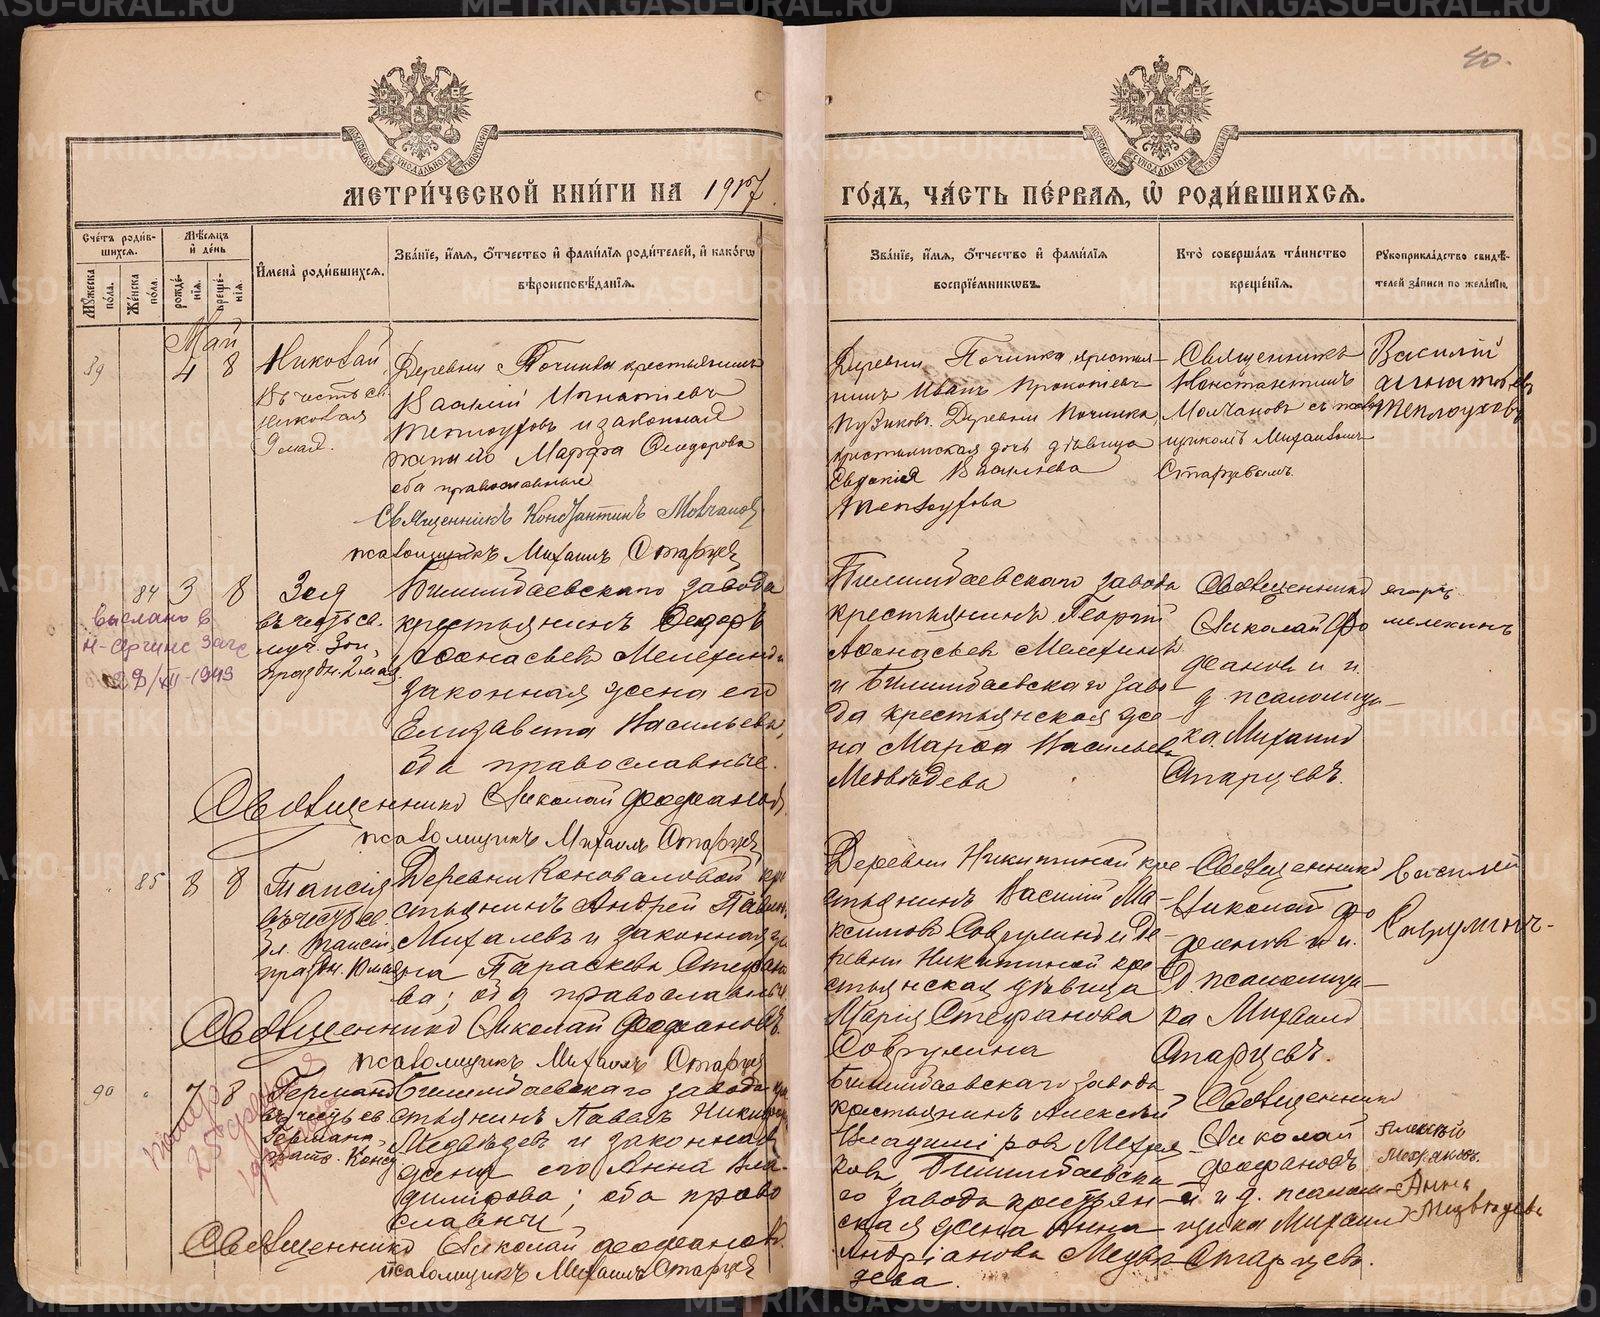 40.
МЕТРИ́ЧЕСКОЙ КНИ́ГИ НА 1917
ГО́ДЪ, ЧА́СТЬ ПЕ́РВАЯ, Ѡ҆ РОДИ́ВШИХСѦ.
Сче́тъ роди́в-
шихсѧ.
Мꙋ́жеска
по́ла.
Же́нска
по́ла.
Мѣ́сѧцъ
и҆ де́нь
рожде́-
нїѧ.
креще́-
нїѧ.
И҆мена̀ роди́вшихсѧ.
Зва́нїе, и҆́мѧ, ѻ҆́тчество и҆ фами́лїѧ роди́телей, и҆ како́гѡ
вѣроисповѣ́данїѧ.
Зва́нїе, и҆́мѧ, ѻ҆́тчество и҆ фами́лїѧ
воспрїе́мникѡвъ.
Кто̀ соверша́лъ та́инство
креще́нїѧ.
Рꙋкоприкла́дство свидѣ́-
телей за́писи по жела́нїю.
Май
39
4 8
Николай
Въ честь св.
Николая
9 мая.
Деревни Починка крестьянинъ
Василій Игнатіевъ
Теплоуховъ и законная
жена его Марфа Феодорова
оба православные
Священникъ Константинъ Молчановъ
псаломщикъ Михаилъ Старцевъ
Деревни Починка крестья-
нинъ Иванъ Прокопіевъ
Пузиковъ. Деревни Починка,
крестьянская дочь дѣвица
Евдокія Васильева
Теплоухова
Священникъ
Константинъ
Молчановъ съ псалом
щикомъ Михаиломъ
Старцевымъ.
Василій
Игнатіевъ
Теплоуховъ
84 3 8
выслано в
Н-Сергинс Загс
28/XII-1943
Зоя
въ честь св.
муч. Зои,
праздн. 2 мая
Билимбаевскаго завода
крестьянинъ Ѳедоръ
Аѳонасьевъ Мелехинъ и
законная жена его
Елизавета Васильева,
оба православные.
Священникъ Николай Феофановъ
псаломщикъ Михаилъ Старцевъ
Билимбаевскаго завода
крестьянинъ Георгій
Аѳонасьевъ Мелехинъ
и Билимбаевскаго заво-
да крестьянская же-
на Марѳа Васильева
Медвѣдева
Священникъ
Николай Фео
фановъ и и.
д. псаломщи-
ка Михаилъ
Старцевъ.
егоръ
мелехинъ
85 8 8
Таисія
въ честь св
бл. Таисіи
праздн. 10 мая
Деревни Коноваловой кре
стьянинъ Андрей Павлов
Михалевъ и законная же
на Параскева Стефано
ва; оба православные
Священникъ Николай Феофановъ
псаломщикъ Михаилъ Старцевъ
Деревни Никитиной кре
стьянинъ Василій Ма-
ксимовъ Соврулинъ и де-
ревни Никитиной кре-
стьянская дѣвица
Марія Стефанова
Соврулина
Священникъ
Николай Фео
фановъ и и.
д. псаломщи-
ка Михаилъ
Старцевъ.
Василій
90 „ 7 8
Германъ
въ честь св
Германа,
патр. Конст
Билимбаевскаго завода кре
стьянинъ Павелъ Никифор
Медвѣдевъ и законная
жена его Анна Вла-
димірова; оба право
славны
Священникъ Николай Феофановъ.
псаломщикъ Михаилъ Старцевъ
Билимбаевскаго завода
крестьянинъ Алексѣй
Владиміровъ
Билимбаевска-
го завода крестьян-
ская жена Анна
Андріанова Медвѣ-
дева.
Священникъ
Николай
Феофановъ
и. и д. псалом-
щика Михаилъ
Старцевъ.
Алексѣй
Анна
Медвѣдева
METRIKI.GASO-URAL.RU